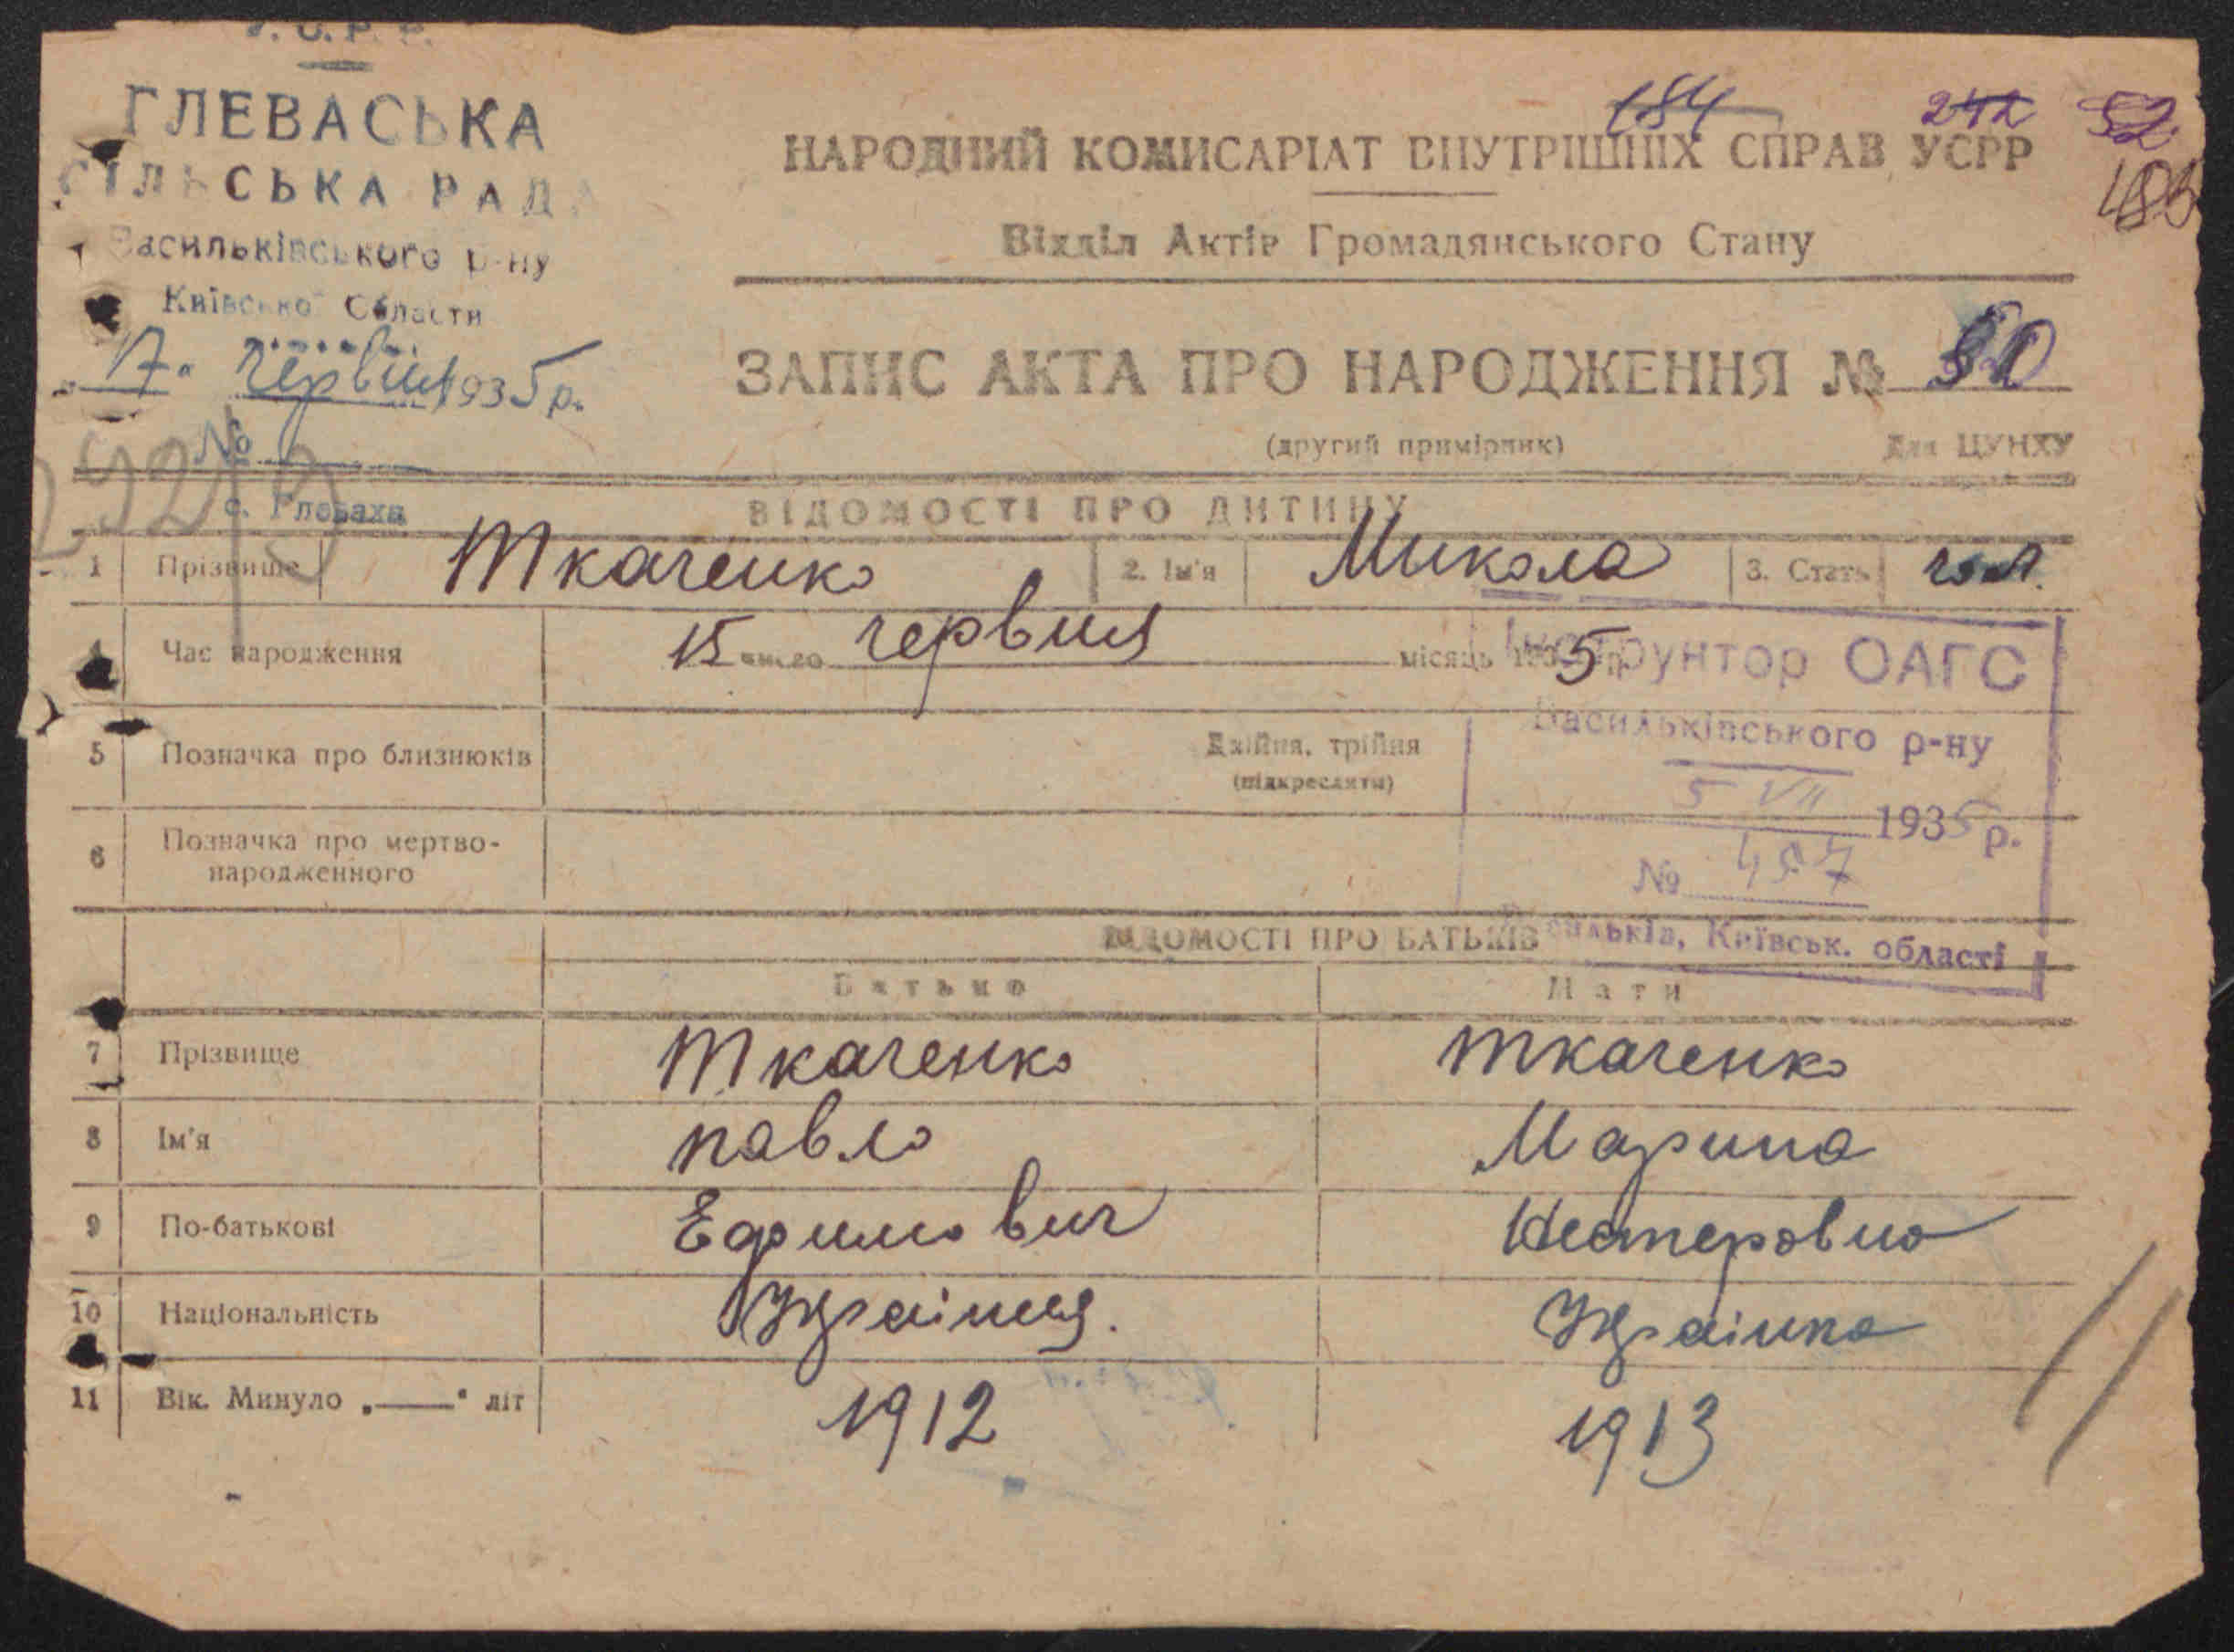 У.С.Р.Р.
ГЛЕВАСЬКА
СІЛЬСЬКА РАДА
Васильківського р-ну
Київської Области
„17“ червня 1935 р.
№
с. Глеваха
184 242 52
НАРОДНИЙ КОМИСАРІАТ ВНУТРІШНІХ СПРАВ УСРР
Відділ Актів Громадянського Стану
ЗАПИС АКТА ПРО НАРОДЖЕННЯ №
(другий примірник) Для ЦУНХУ
ВІДОМОСТІ ПРО ДИТИНУ
1 Прізвище Ткаченко 2. Ім'я Микола 3. Стать чол.
4 Час народження 15 число червня місяць 1935 р.
Інструктор ОАГС
Васильківського р-ну
5 VII 1935 р.
№ 457
Васильків, Київськ. області
5 Позначка про близнюків Двійня, трійня
(підкреслити)
6 Позначка про мертво-
народженного
ВІДОМОСТІ ПРО БАТЬКІВ
Батько Мати
7 Прізвище Ткаченко Ткаченко
8 Ім'я Павло Марина
9 По-батькові Ефимович Нестеровна
10 Національність Українец. Українка
11 Вік. Минуло „——“ літ 1912 1913